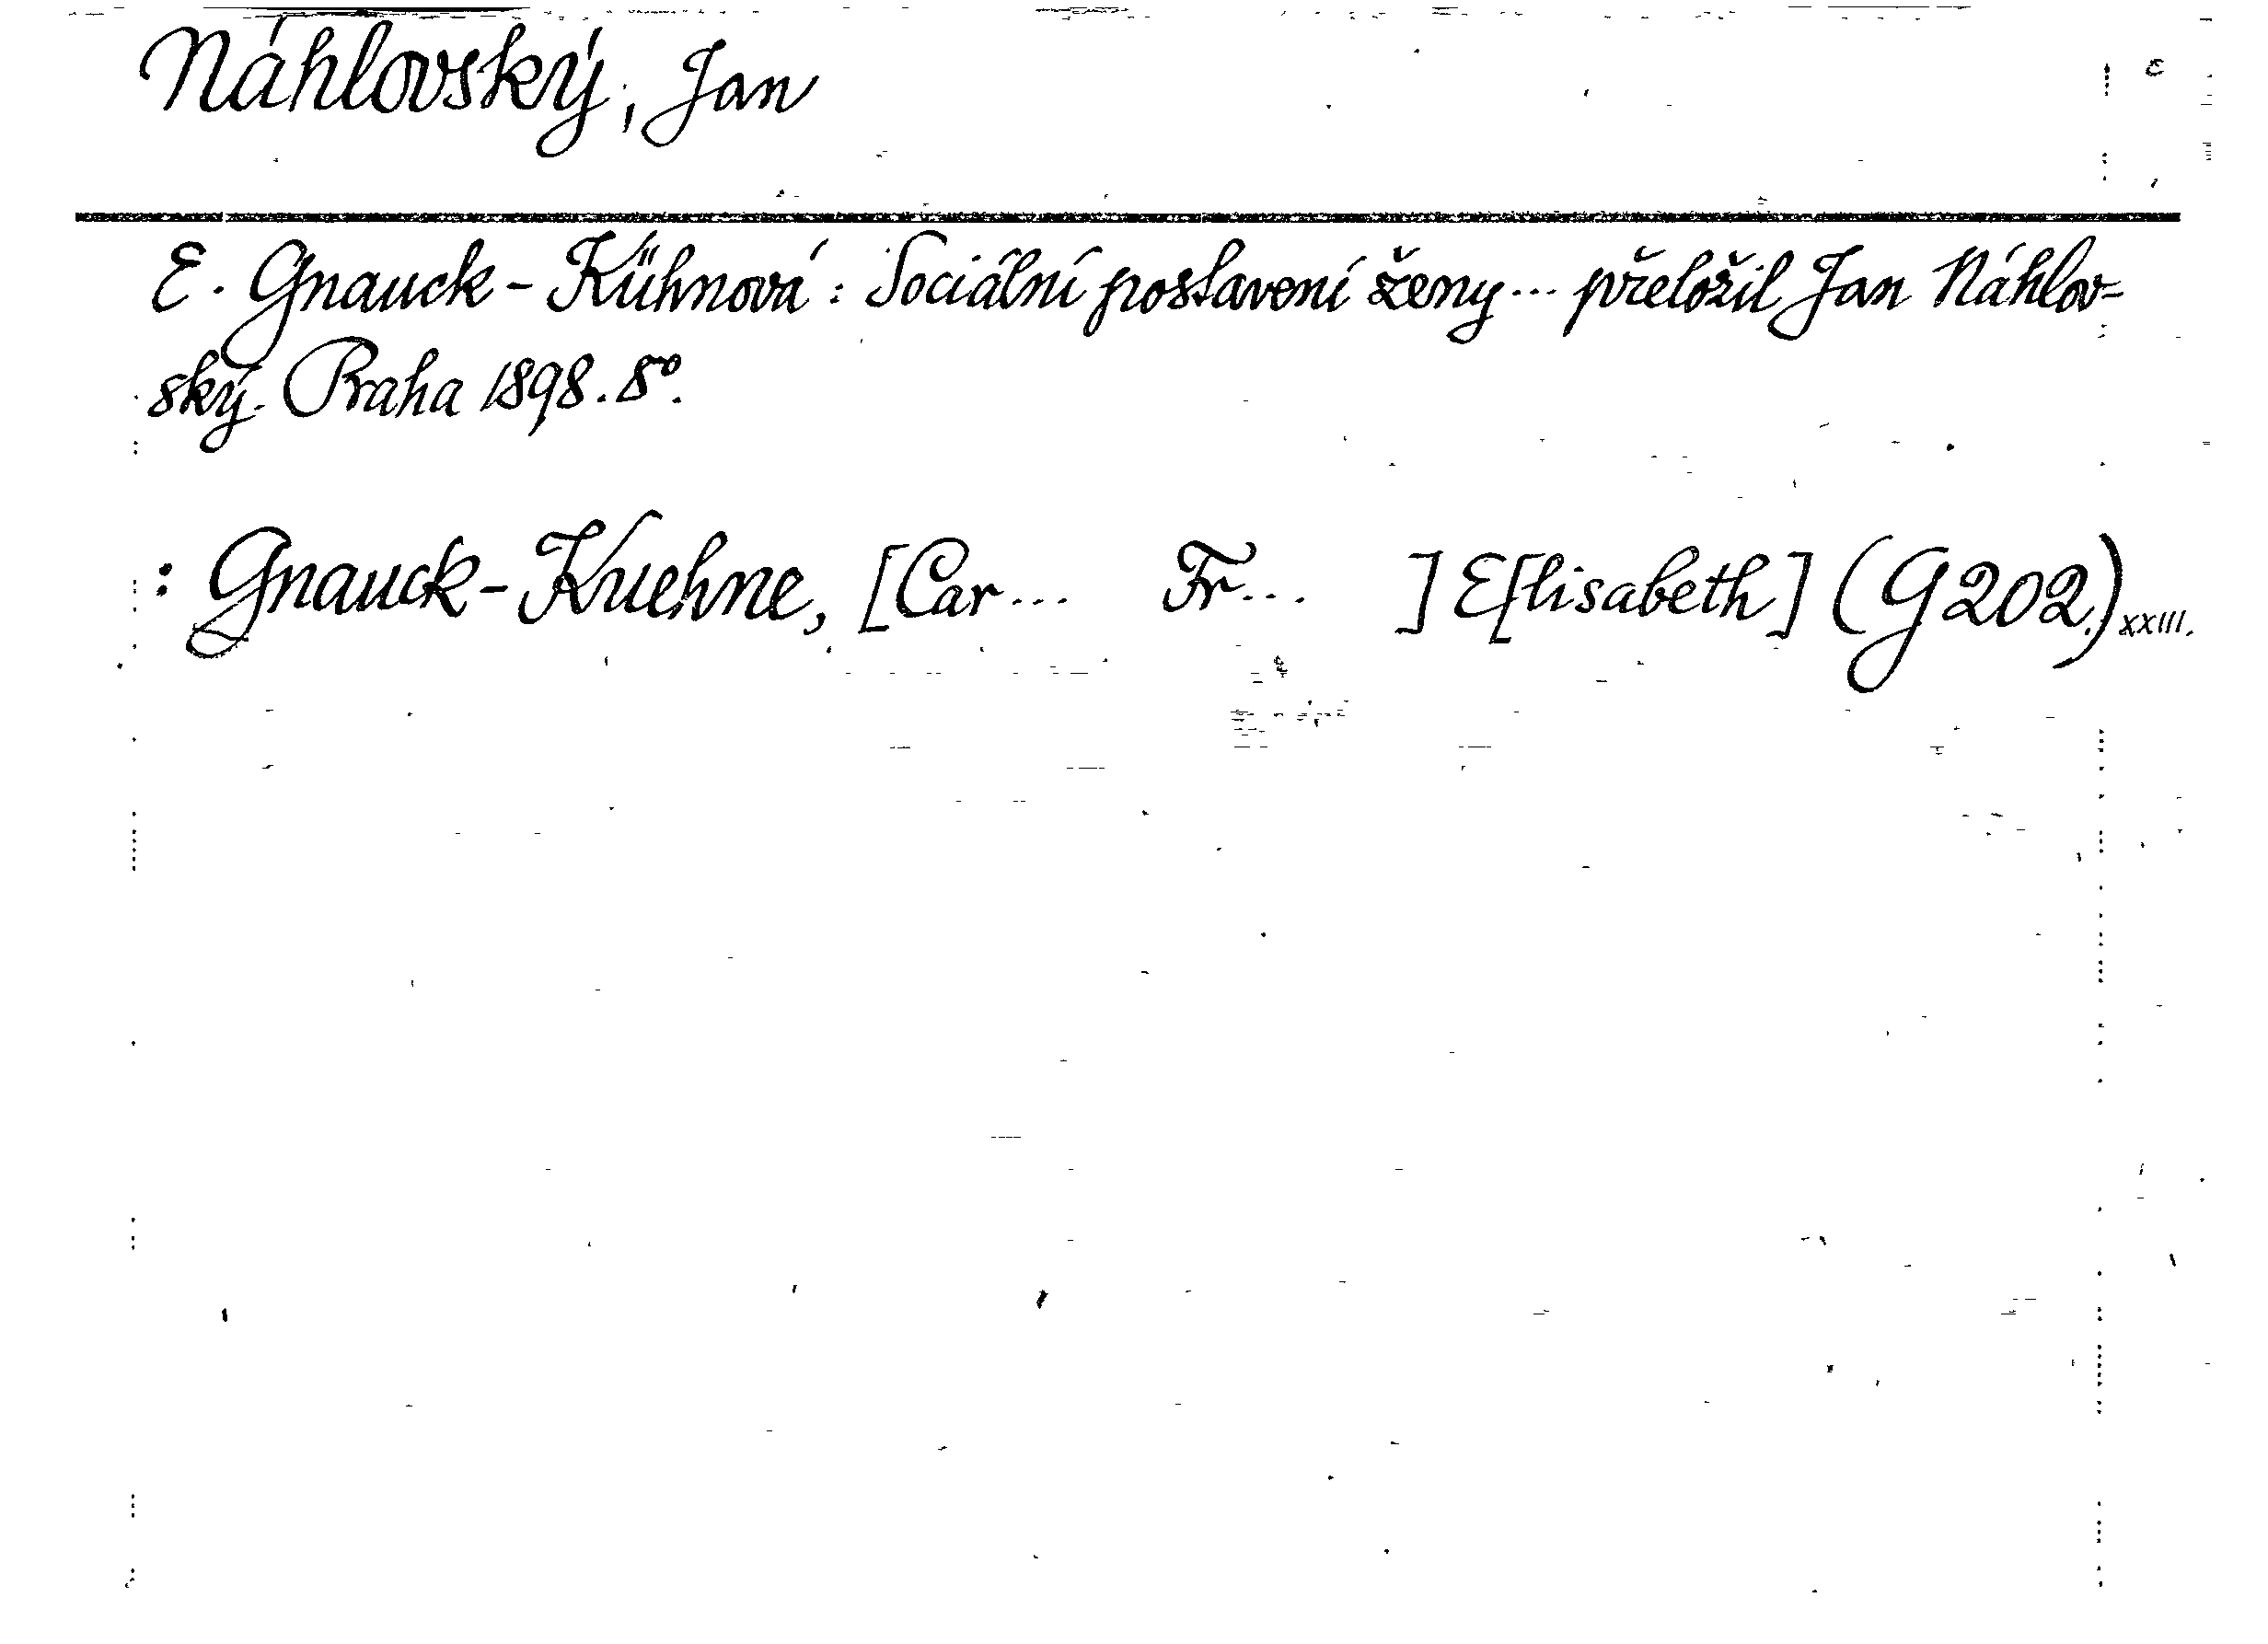 Náhlovský, Jan
E. Gnauck-Kühnová: Sociální postavení ženy... přeložil Jan Náhlov-
ský. Praha 1898. 8°.
: Gnauck-Kuehne, [Car... Fr... ] E[lisabeth] (G 202.) XXIII.